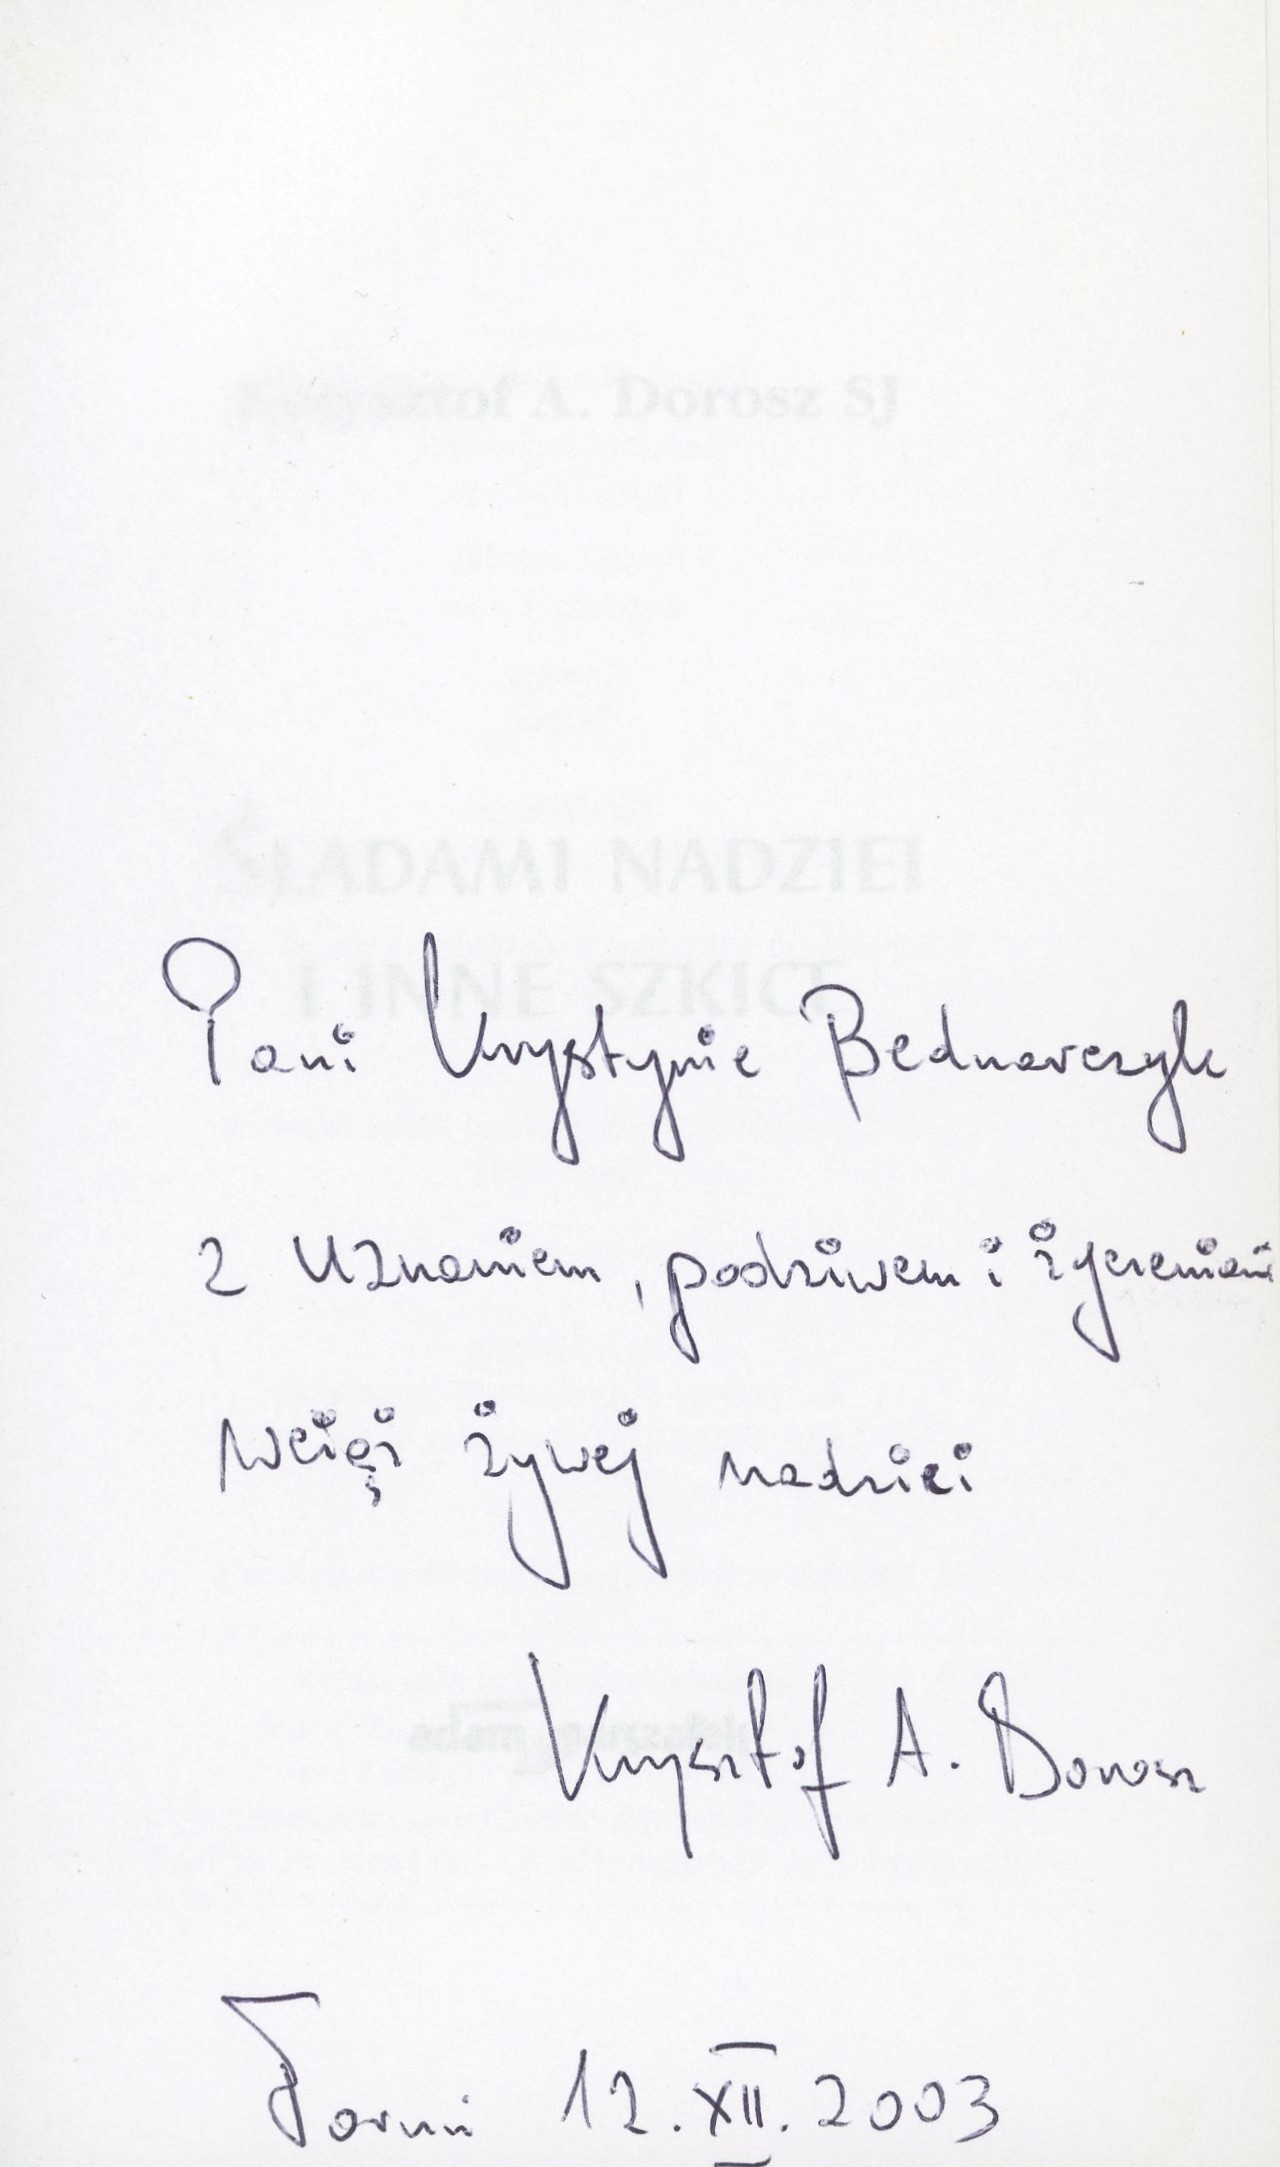 Krzysztof A. Dorosz SJ
ŚLADAMI NADZIEI
I INNE SZKICE
Pani Krystynie Bednarczyk
z uznaniem, podziwem i życzeniami
wciąż żywej nadziei
adam marszałek
Krzysztof A. Dorosz
Toruń 12.XII.2003